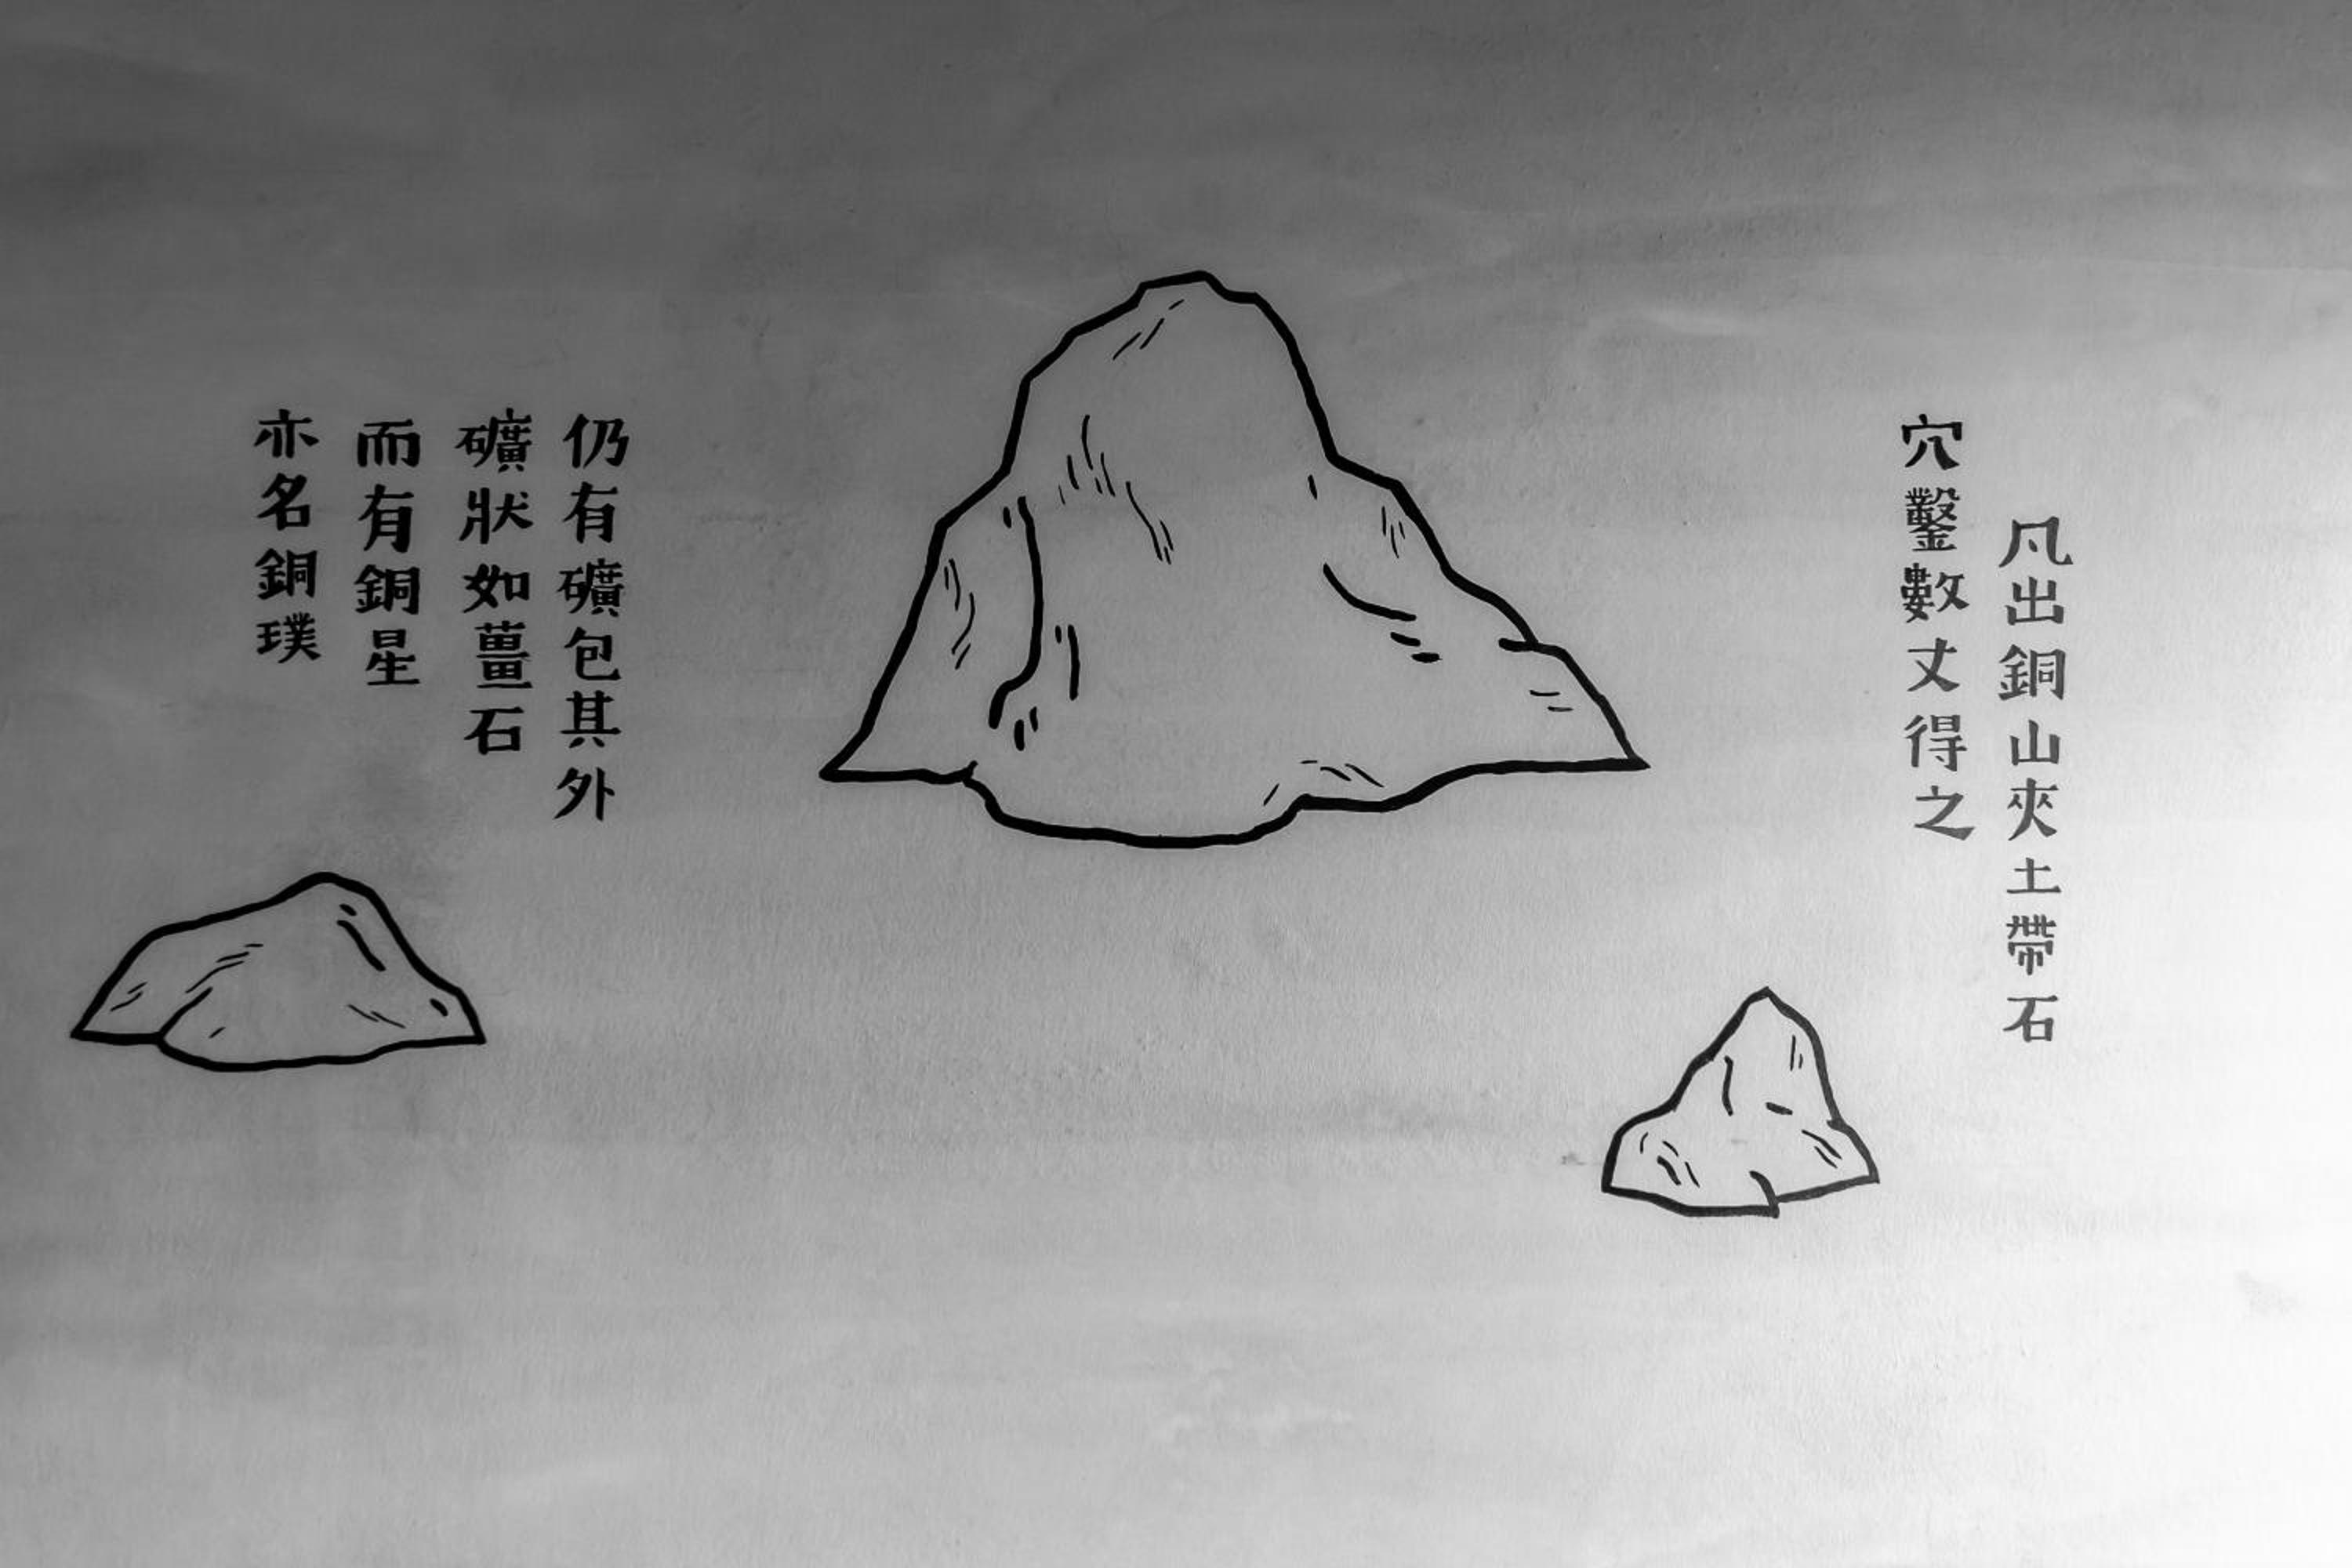 凡出銅山夾土帶石
穴鑿數丈得之
仍有礦包其外
礦狀如薑石
而有銅星
亦名銅璞